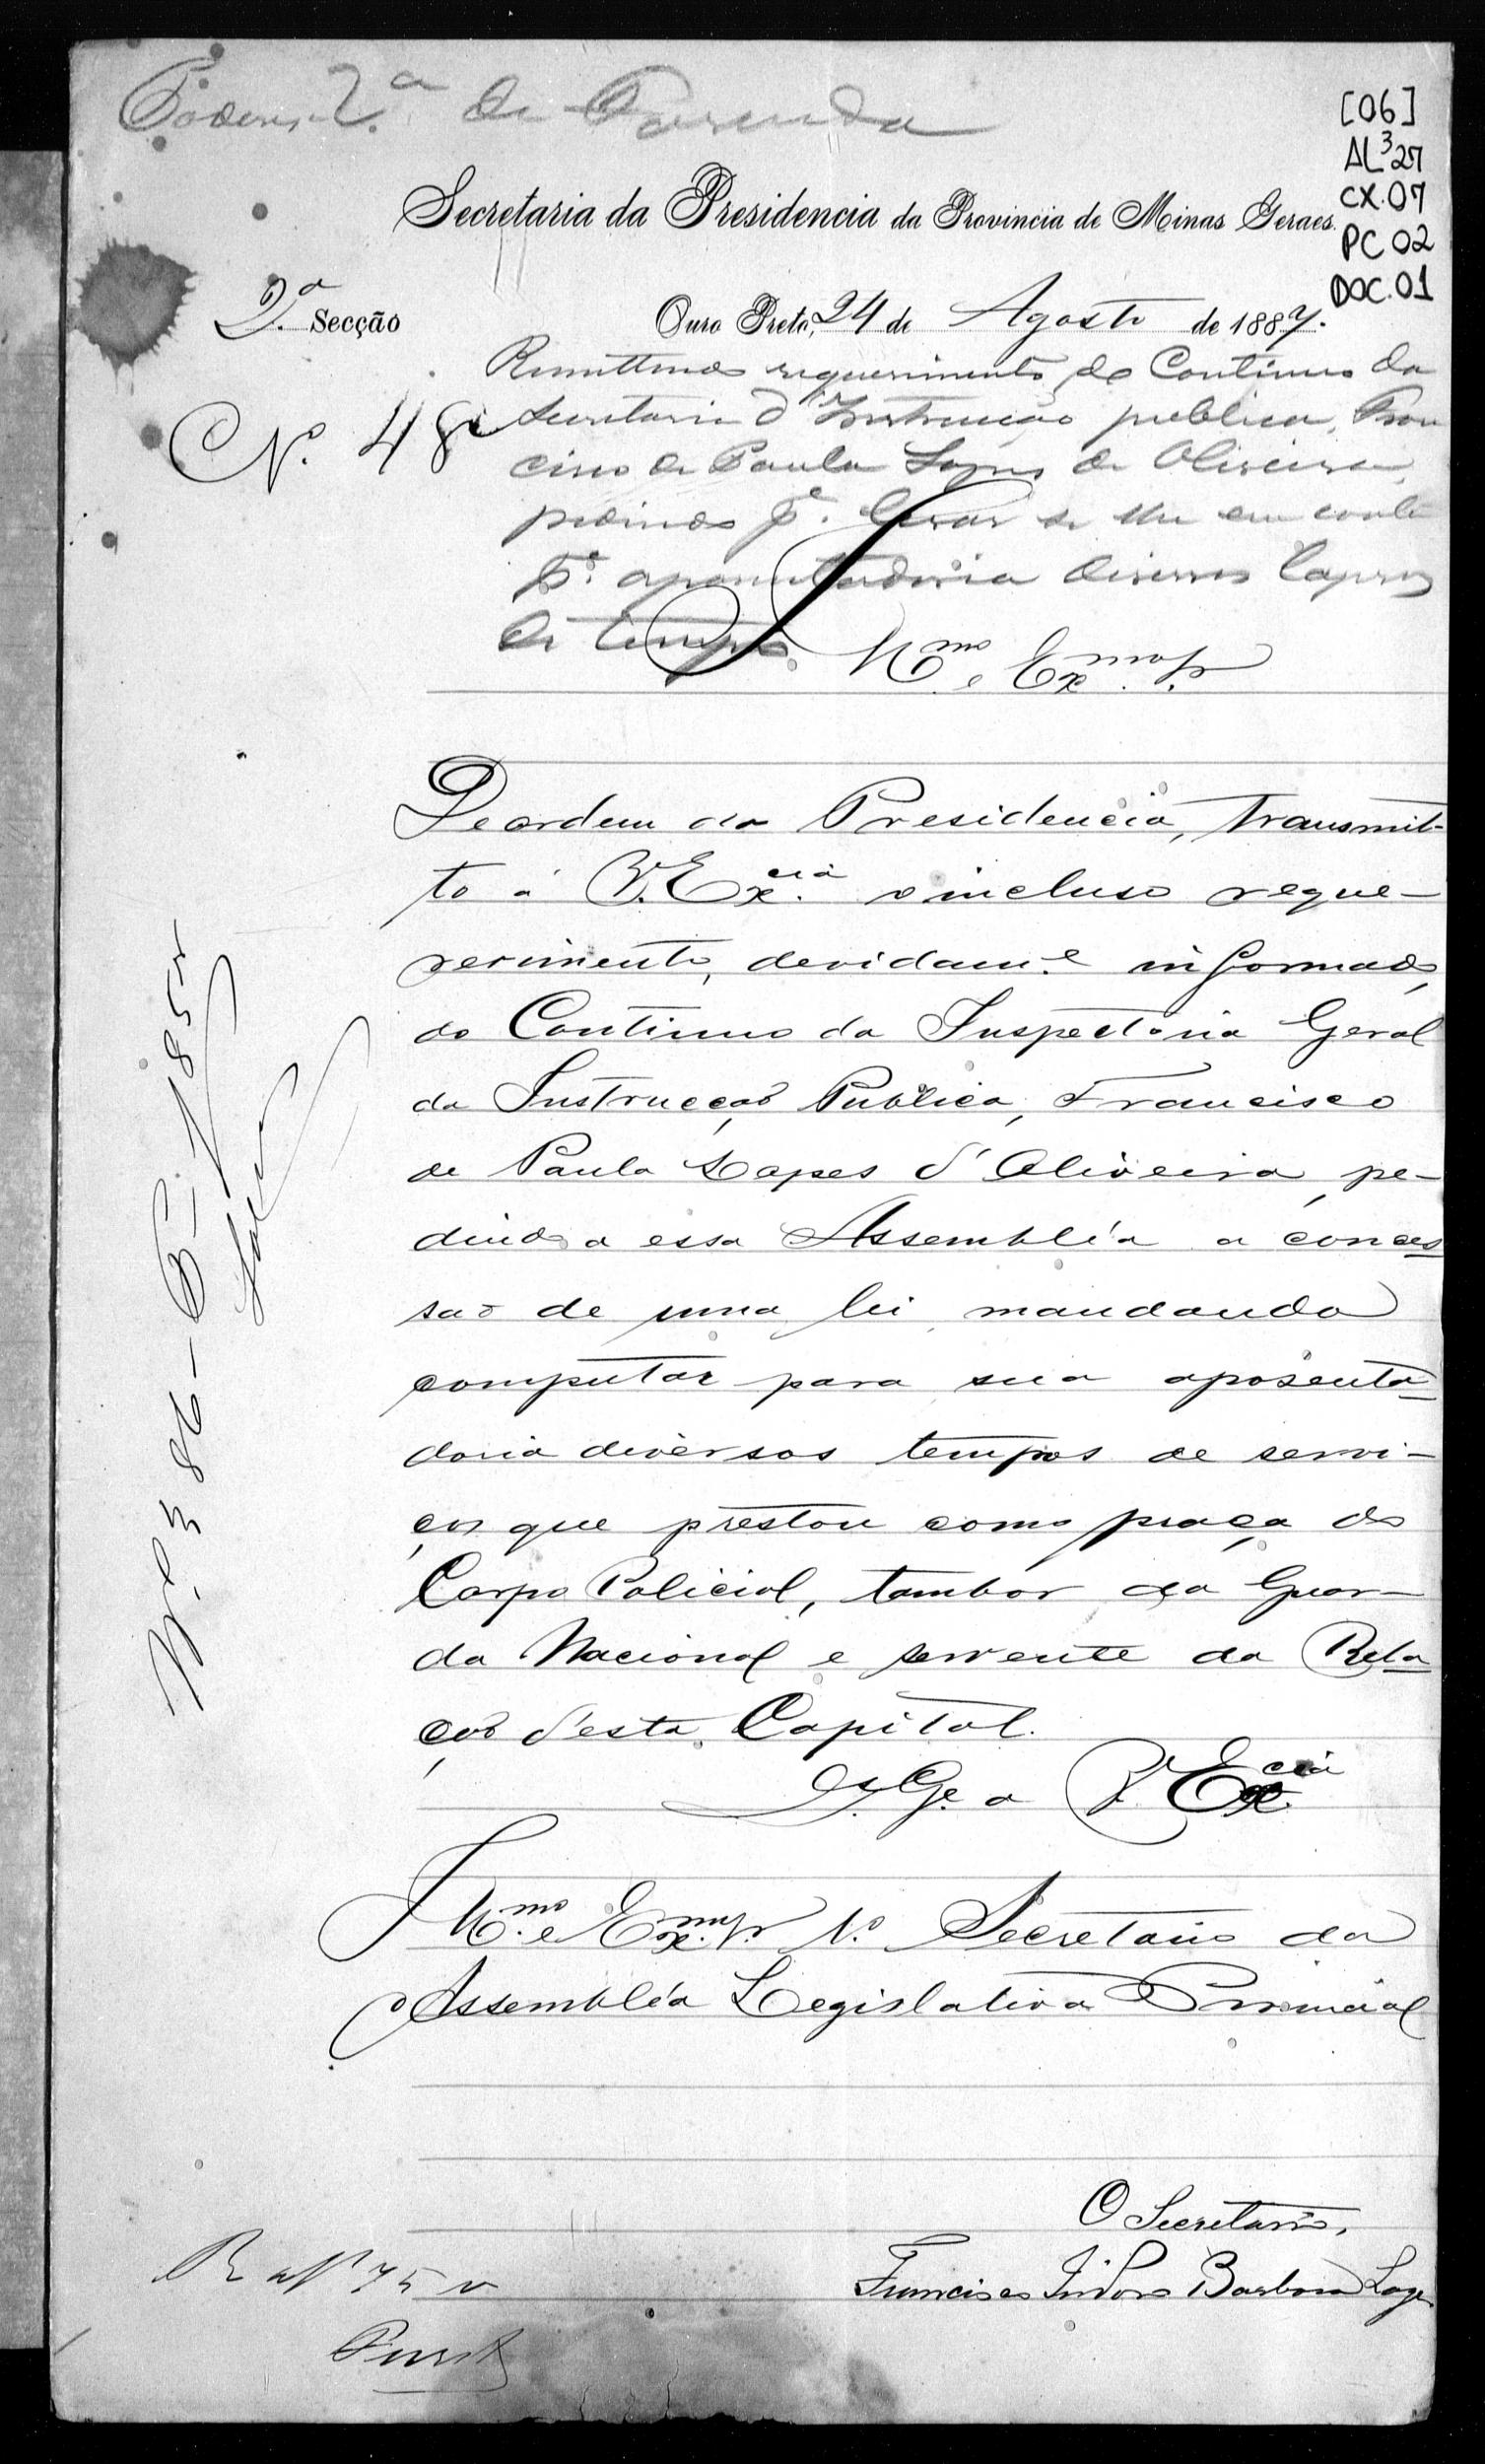 2.ª de Fazenda
[06]
AL³27
CX.07
PC 02
DOC.01
Secretaria da Presidencia da Provincia de Minas Geraes.
2.ª Secção
Ouro Preto, 24 de Agosto de 1887.
N.º 48
Remettendo requerimento do Continuo da
Secretaria d'Instrucção publica, Fran
cisco de Paula Lopes de Oliveira,
pedindo p.ª levar se lhe em conta
p.ª aposentadoria diversos lapsos
de tempo.
Ill.mo e Ex.mo Sr.
De ordem da Presidencia, transmit-
to á V. Ex.cia o incluso reque-
rerimento, devidam.e informado,
do Continuo da Inspectoria Geral
da Instrucção Publica, Francisco
de Paula Lopes d'Oliveira, pe-
dindo a essa Assembléa a conces
são de uma lei mandando
computar para sua aposenta-
doria diversos tempos de servi-
ços que prestou como praça do
Corpo Policial, tambor da Guar-
da Nacional e servente da Rela
ção d'esta Capital.
D.s G.e a V. Ex.cia
Ill.mo e Ex.mo Sr. 1.º Secretario da
Assembléa Legislativa Provincial
O Secretario,
Francisco Izidoro Barbosa Lage